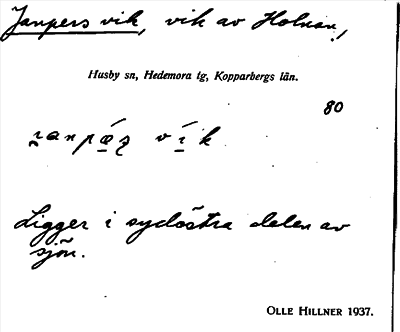 Janpers vik, vik av Holnan,
Husby sn, Hedemora tg, Kopparbergs län.
80
Ligger i sydöstra delen av
sjön.
OLLE HILLNER 1937.